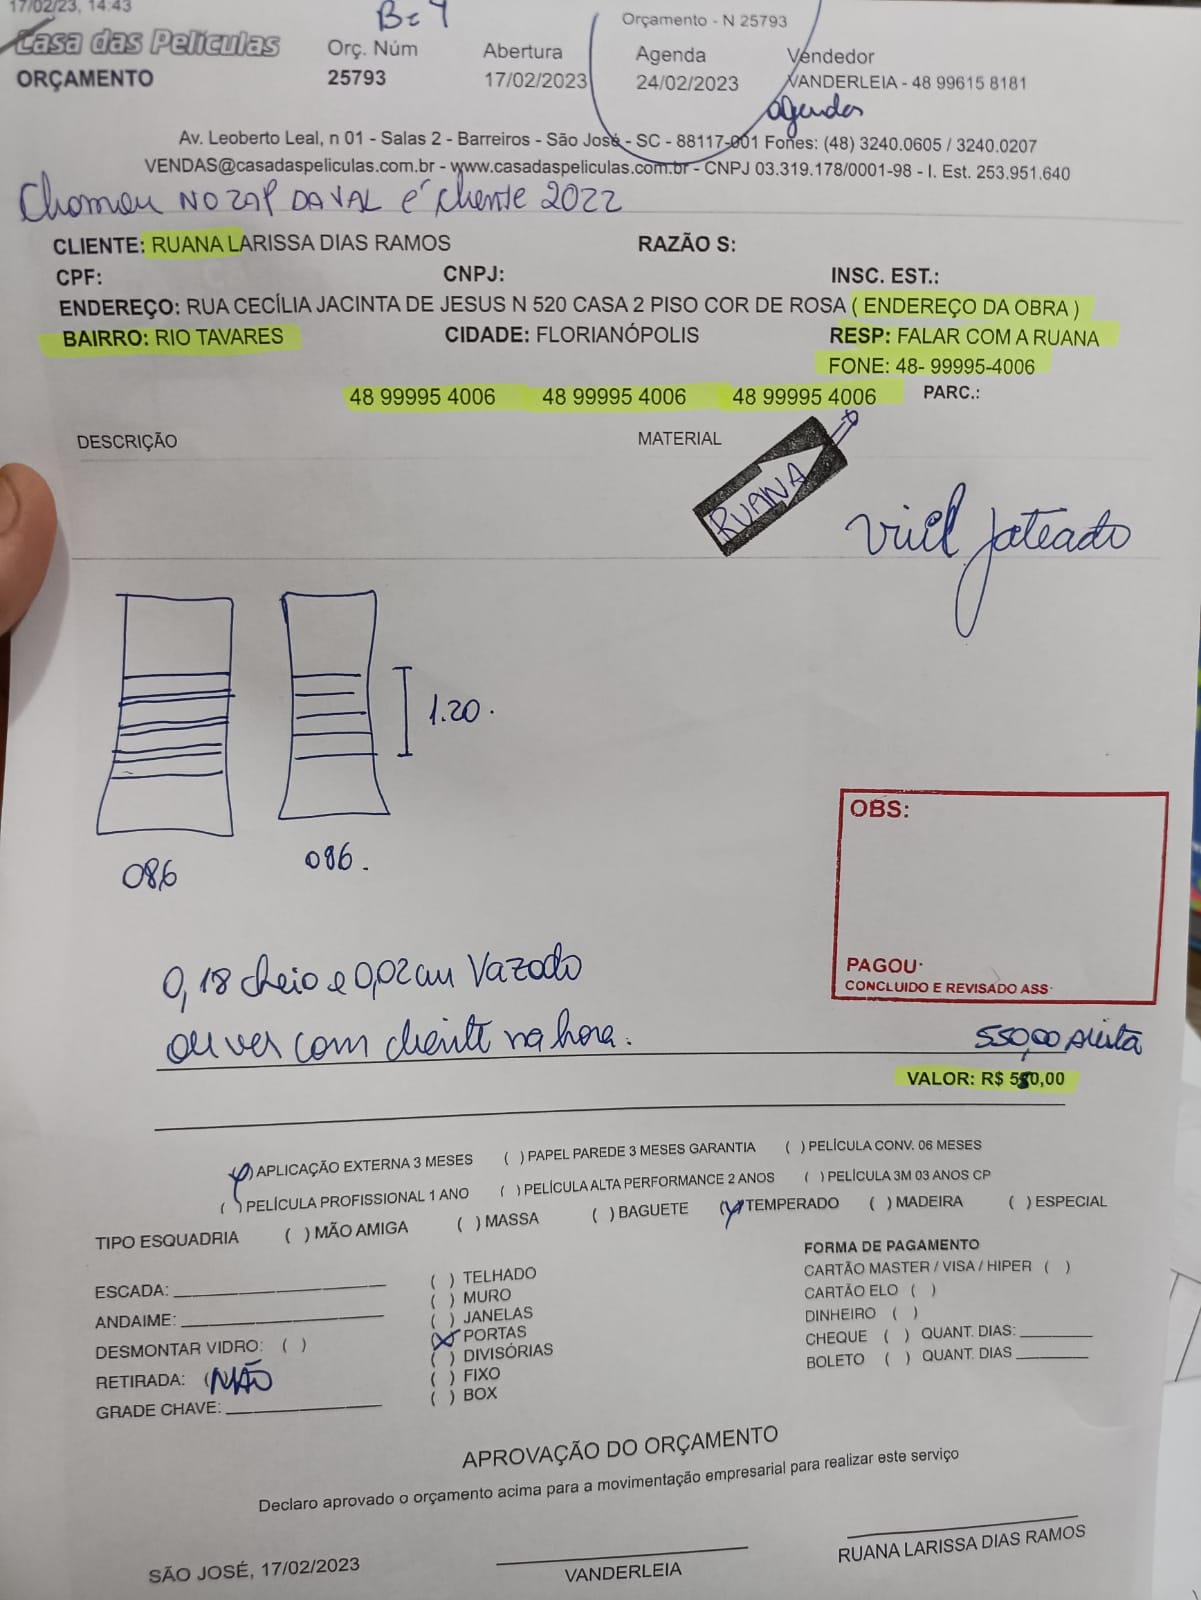 17/02/23, 14:43
Orçamento - N 25793
Casa das Películas
ORÇAMENTO
Orç. Núm
25793
Abertura
17/02/2023
Agenda
24/02/2023
Vendedor
VANDERLEIA - 48 99615 8181
Av. Leoberto Leal, n 01 - Salas 2 - Barreiros - São José - SC - 88117-001 Fones: (48) 3240.0605 / 3240.0207
VENDAS@casadaspeliculas.com.br - www.casadaspeliculas.com.br - CNPJ 03.319.178/0001-98 - I. Est. 253.951.640
Chamou NO ZAP DA VAL é cliente 2022
CLIENTE: RUANA LARISSA DIAS RAMOS RAZÃO S:
CPF: CNPJ: INSC. EST.:
ENDEREÇO: RUA CECÍLIA JACINTA DE JESUS N 520 CASA 2 PISO COR DE ROSA ( ENDEREÇO DA OBRA )
BAIRRO: RIO TAVARES CIDADE: FLORIANÓPOLIS RESP: FALAR COM A RUANA
FONE: 48- 99995-4006
48 99995 4006 48 99995 4006 48 99995 4006 PARC.:
DESCRIÇÃO MATERIAL
RUANA
jateado
1.20.
086 086.
OBS:
0,18 cheio e 0,02cm vazado
PAGOU:
CONCLUIDO E REVISADO ASS:
ou ver com cliente na hora.
550,00 avista
VALOR: R$ 580,00
( ) APLICAÇÃO EXTERNA 3 MESES ( ) PAPEL PAREDE 3 MESES GARANTIA ( ) PELÍCULA CONV. 06 MESES
( ) PELÍCULA PROFISSIONAL 1 ANO ( ) PELÍCULA ALTA PERFORMANCE 2 ANOS ( ) PELÍCULA 3M 03 ANOS CP
TIPO ESQUADRIA ( ) MÃO AMIGA ( ) MASSA ( ) BAGUETE (X) TEMPERADO ( ) MADEIRA ( ) ESPECIAL
ESCADA:
ANDAIME:
DESMONTAR VIDRO: ( )
RETIRADA: ( NÃO
GRADE CHAVE:
( ) TELHADO
( ) MURO
( ) JANELAS
(X) PORTAS
( ) DIVISÓRIAS
( ) FIXO
( ) BOX
FORMA DE PAGAMENTO
CARTÃO MASTER / VISA / HIPER ( )
CARTÃO ELO ( )
DINHEIRO ( )
CHEQUE ( ) QUANT. DIAS:
BOLETO ( ) QUANT. DIAS
APROVAÇÃO DO ORÇAMENTO
Declaro aprovado o orçamento acima para a movimentação empresarial para realizar este serviço
SÃO JOSÉ, 17/02/2023
VANDERLEIA
RUANA LARISSA DIAS RAMOS